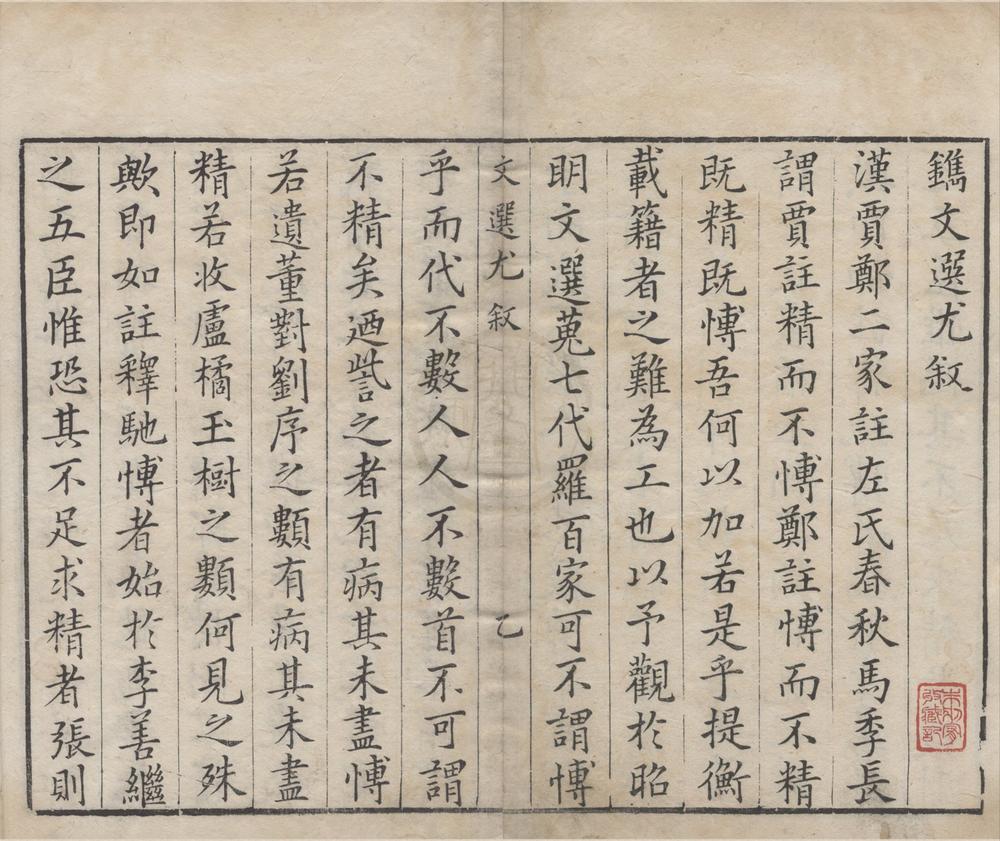 鐫文選尤叙
漢賈鄭二家註左氏春秋馬季長
謂賈註精而不愽鄭註愽而不精
既精既愽吾何以加若是乎提衡
載籍者之難為工也以予觀於昭
明文選蒐七代羅百家可不謂愽
文選尤叙 乙
乎而代不數人人不數首不可謂
不精矣迺訾之者有病其未盡愽
若遺董對劉序之類有病其未盡
精若收盧橘玉樹之類何見之殊
歟即如註釋馳愽者始於李善繼
之五臣惟恐其不足求精者張則